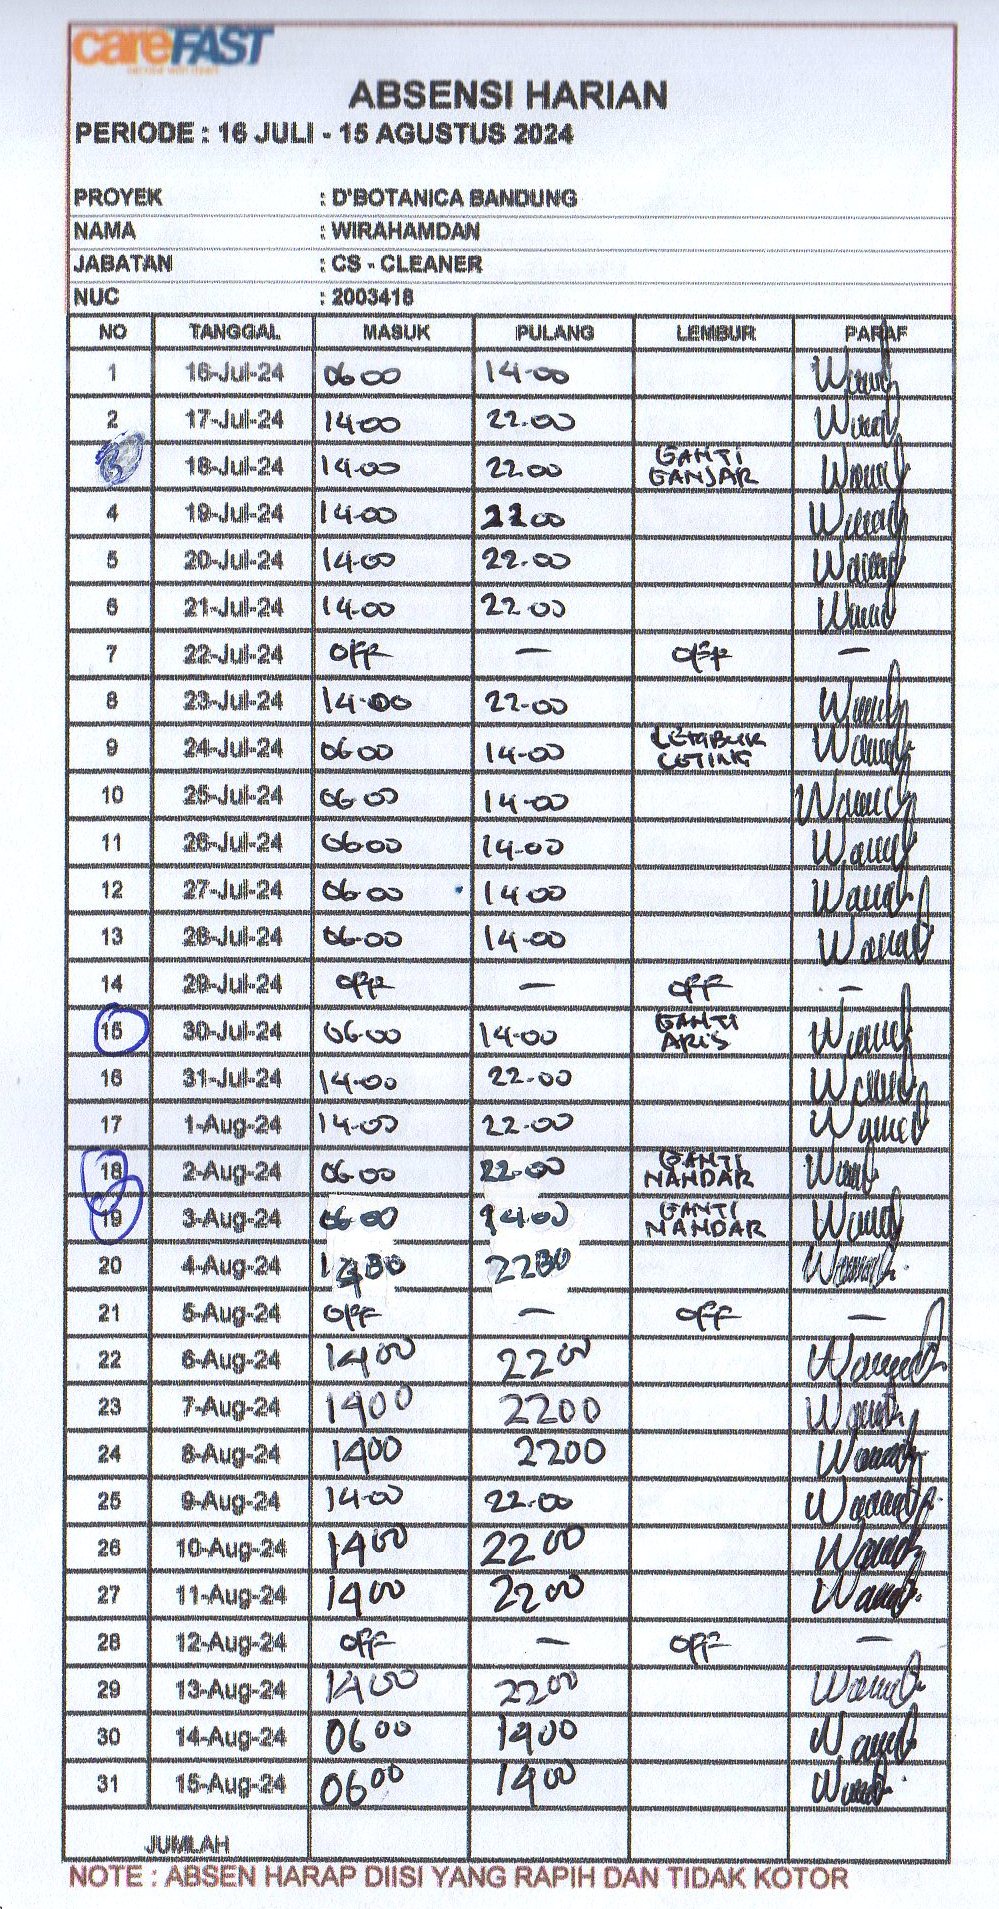 careFAST
ABSENSI HARIAN
PERIODE : 16 JULI - 15 AGUSTUS 2024
PROYEK : D'BOTANICA BANDUNG
NAMA : WIRAHAMDAN
JABATAN : CS - CLEANER
NUC : 2003418
NO TANGGAL MASUK PULANG LEMBUR PARAF
1 16-Jul-24 06 00 14-00
2 17-Jul-24 14-00 22.00
3 18-Jul-24 14-00 22.00 GANTI GANJAR
4 19-Jul-24 14-00 22 00
5 20-Jul-24 14-00 22.00
6 21-Jul-24 14-00 22.00
7 22-Jul-24 OFF — OFF —
8 23-Jul-24 14-00 22-00
9 24-Jul-24 06 00 14-00 LEMBUR
10 25-Jul-24 06 00 14-00
11 26-Jul-24 06-00 14-00
12 27-Jul-24 06-00 14-00
13 28-Jul-24 06-00 14-00
14 29-Jul-24 OFF — OFF —
15 30-Jul-24 06-00 14-00 GANTI ARIS
16 31-Jul-24 14-00 22-00
17 1-Aug-24 14-00 22-00
18 2-Aug-24 06-00 22-00 GANTI NANDAR
19 3-Aug-24 06-00 14.00 GANTI NANDAR
20 4-Aug-24 2230
21 5-Aug-24 OFF — OFF —
22 6-Aug-24 1400 2200
23 7-Aug-24 1400 2200
24 8-Aug-24 1400 2200
25 9-Aug-24 14-00 22-00
26 10-Aug-24 1400 2200
27 11-Aug-24 1400 2200
28 12-Aug-24 OFF — OFF —
29 13-Aug-24 1400 2200
30 14-Aug-24 0600 1400
31 15-Aug-24 0600 1400
JUMLAH
NOTE : ABSEN HARAP DIISI YANG RAPIH DAN TIDAK KOTOR